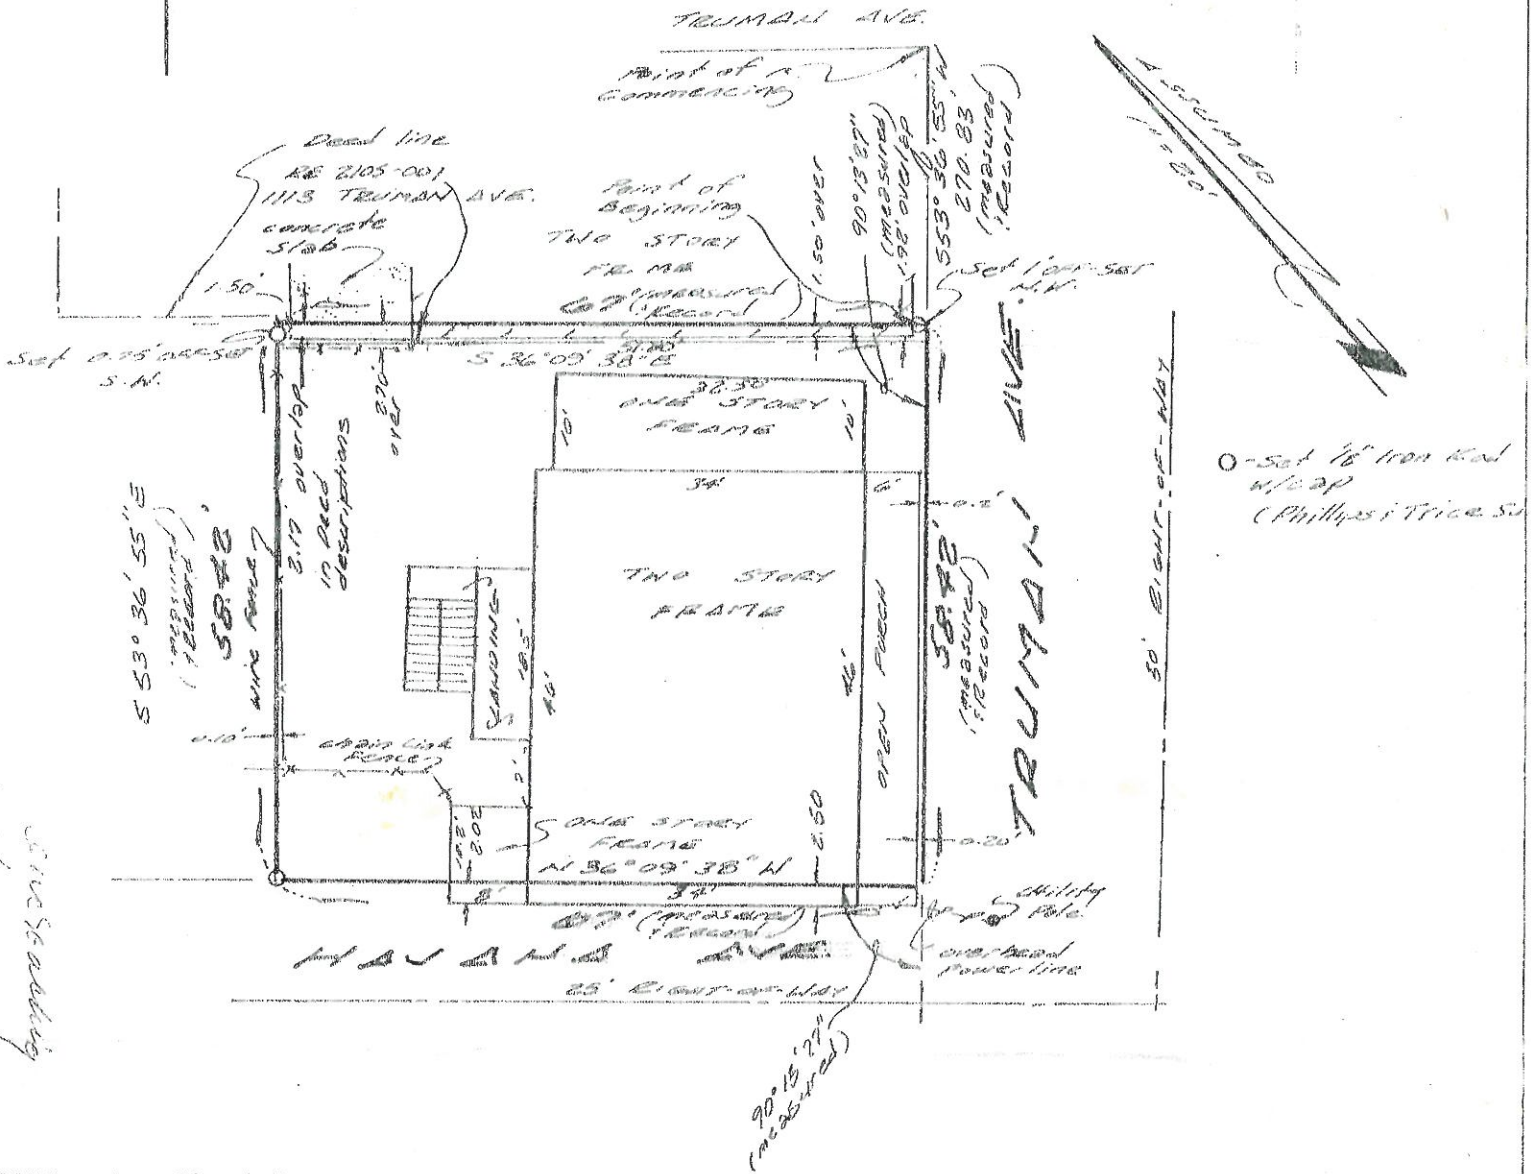 TRUMAN AVE.
Point of
Commencing
S53° 36' 55" W
270.83'
(measured
& Record)
ASSUMED
1"=20'
Deed line
RE 2105-001
1113 TRUMAN AVE.
concrete
slab
1.50'
Point of
Beginning
TWO STORY
FRAME
67' (measured
& Record)
1.50' over
(measured)
1.92' overlap
Set 1' OFF-SET
N.W.
Set 0.75' OFF-SET
S.W.
S 36° 09' 38" E
2.17' overlap
in Deed
descriptions
2.70'
over
32.50'
ONE STORY
FRAME
10'
10'
34'
6'
0.2'
S 53° 36' 55" E
(measured
& Record)
58.42'
wire fence
TWO STORY
FRAME
LANDING
18.5'
46'
46'
OPEN PORCH
58.42'
(measured
& Record)
TRUMAN AVE.
50' RIGHT-OF-WAY
O-Set 1/2" Iron Rod
w/cap
(Phillips & Trice Su
0.10'
chain link
fence
ONE STORY
FRAME
2.50
0.20'
N 36° 09' 38" W
8'
34'
67' (measured)
& Record
Utility
Pole
overhead
Powerline
HAVANA AVE.
25' RIGHT-OF-WAY
(measured)